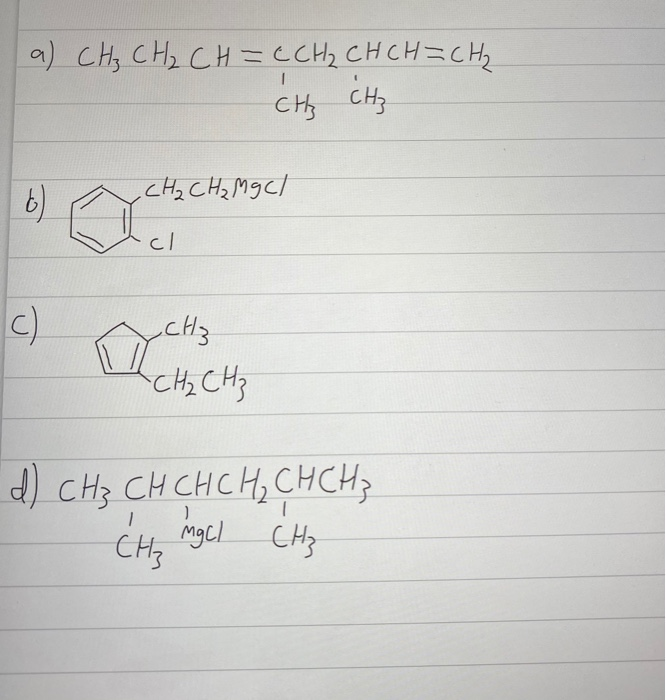 a) CH₃ CH₂ CH = C CH₂ CH CH = CH₂
CH₃ CH₃
b) CH₂ CH₂ MgCl
Cl
c) CH₃
CH₂ CH₃
d) CH₃ CH CH CH₂ CH CH₃
CH₃ MgCl CH₃